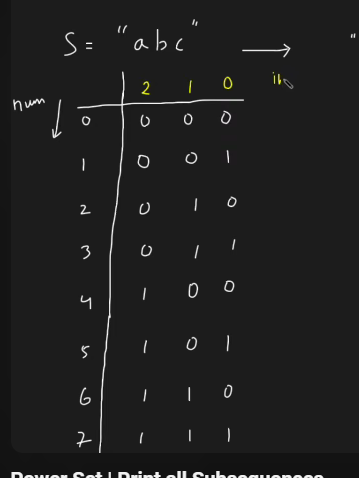 S = "abc" → "
2 1 0 in
num
0 0 0 0
1 0 0 1
2 0 1 0
3 0 1 1
4 1 0 0
5 1 0 1
6 1 1 0
7 1 1 1
Power Set | Print all Subsequences